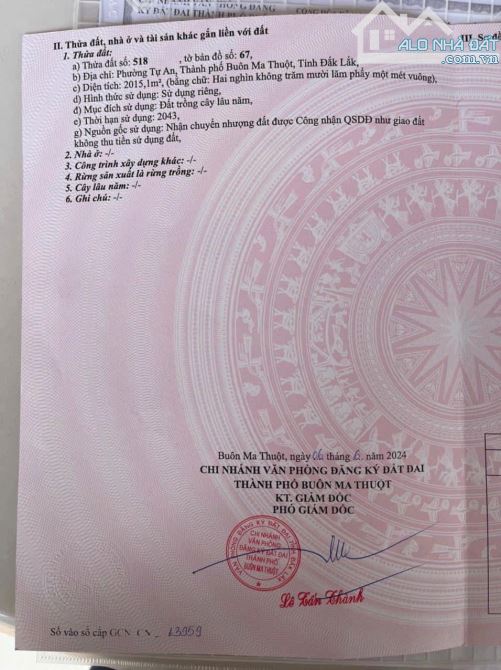 ALO NHÀ ĐẤT
II. Thửa đất, nhà ở và tài sản khác gắn liền với đất
III. Sơ đồ
1. Thửa đất:
a) Thửa đất số: 518 , tờ bản đồ số: 67,
b) Địa chỉ: Phường Tự An, Thành phố Buôn Ma Thuột, Tỉnh Đắk Lắk,
c) Diện tích: 2015,1m², (bằng chữ: Hai nghìn không trăm mười lăm phẩy một mét vuông),
d) Hình thức sử dụng: Sử dụng riêng,
đ) Mục đích sử dụng: Đất trồng cây lâu năm,
e) Thời hạn sử dụng: 2043,
g) Nguồn gốc sử dụng: Nhận chuyển nhượng đất được Công nhận QSDĐ như giao đất
không thu tiền sử dụng đất,
2. Nhà ở: -/-
3. Công trình xây dựng khác: -/-
4. Rừng sản xuất là rừng trồng: -/-
5. Cây lâu năm: -/-
6. Ghi chú: -/-
Buôn Ma Thuột, ngày 06 tháng 6 năm 2024
CHI NHÁNH VĂN PHÒNG ĐĂNG KÝ ĐẤT ĐAI
THÀNH PHỐ BUÔN MA THUỘT
KT. GIÁM ĐỐC
PHÓ GIÁM ĐỐC
VĂN PHÒNG ĐĂNG KÝ ĐẤT ĐAI TỈNH ĐẮK LẮK
CHI NHÁNH
VĂN PHÒNG
ĐĂNG KÝ ĐẤT ĐAI
THÀNH PHỐ
BUÔN MA THUỘT
Lê Tấn Thành
Số vào sổ cấp GCN: CN 13959